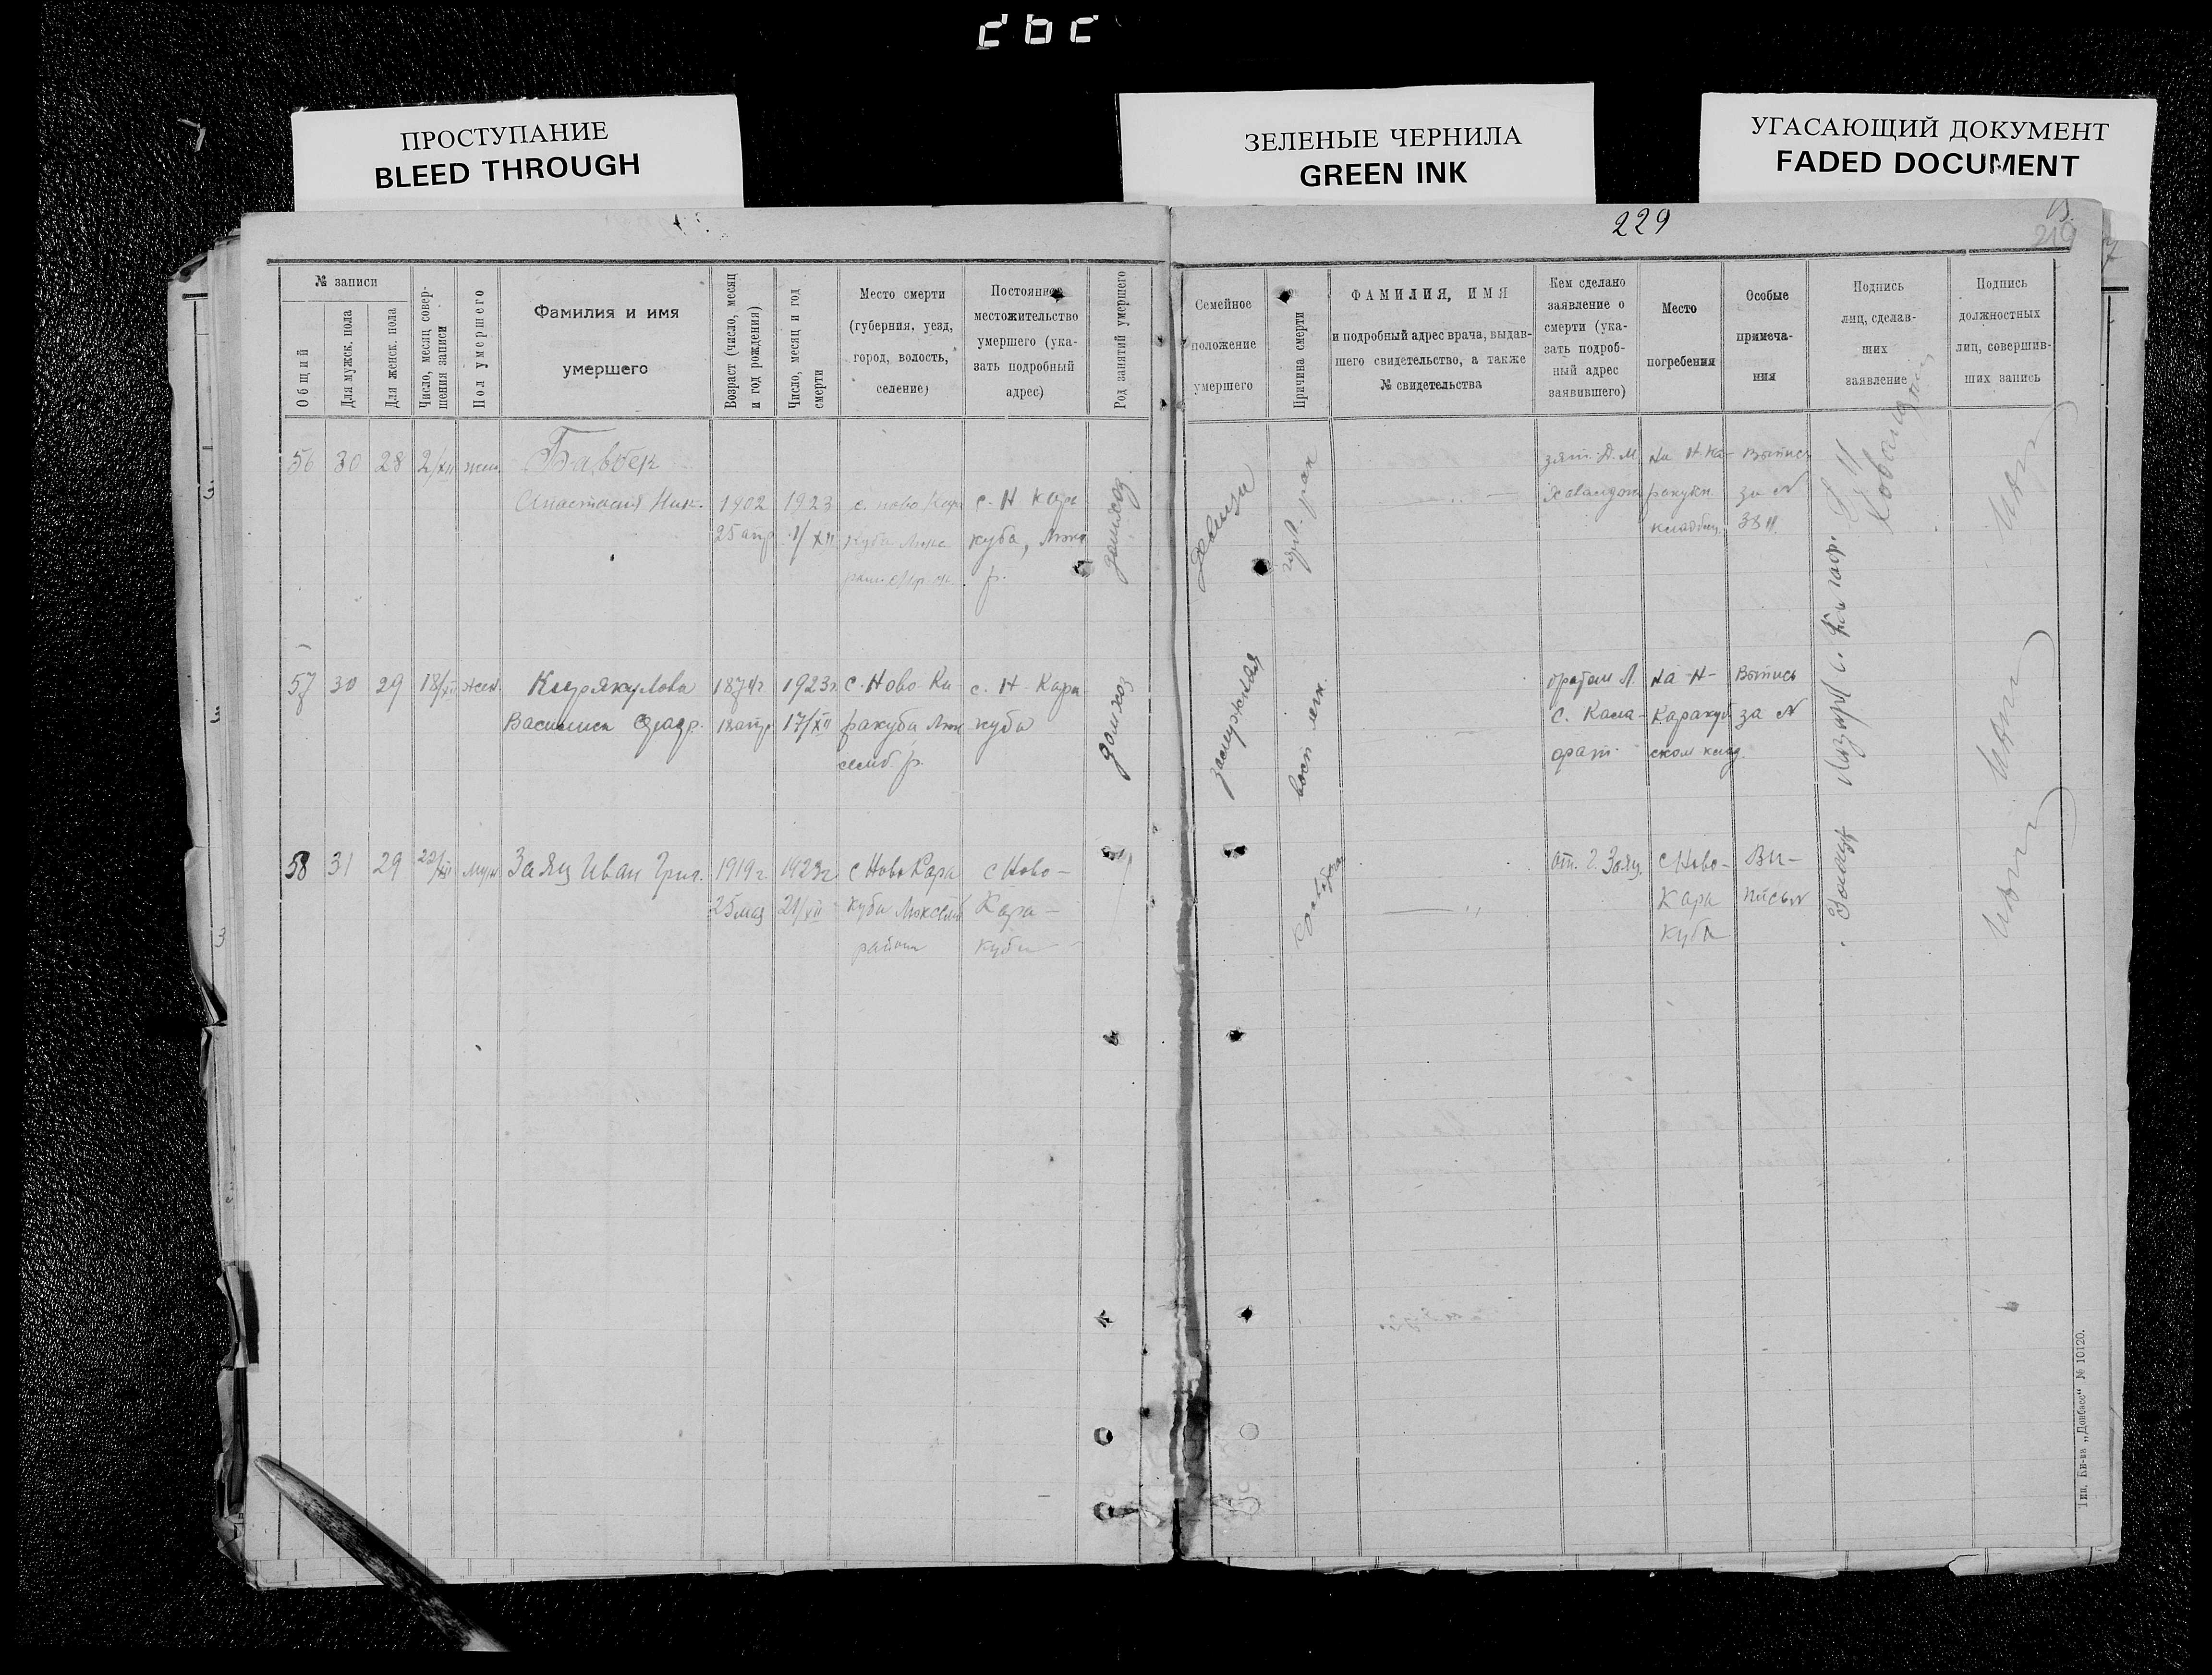 ПРОСТУПАНИЕ
BLEED THROUGH
ЗЕЛЕНЫЕ ЧЕРНИЛА
GREEN INK
УГАСАЮЩИЙ ДОКУМЕНТ
FADED DOCUMENT
229
№ записи
Общий
Для мужск. пола
Для женск. пола
Число, месяц совер-
шения записи
Пол умершего
Фамилия и имя
умершего
Возраст (число, месяц
и год рождения)
Число, месяц и год
смерти
Место смерти
(губерния, уезд,
город, волость,
селение)
Постоянное
местожительство
умершего (ука-
зать подробный
адрес)
Род занятий умершего
Семейное
положение
умершего
Причина смерти
ФАМИЛИЯ, ИМЯ
и подробный адрес врача, выдав-
шего свидетельство, а также
№ свидетельства
Кем сделано
заявление о
смерти (ука-
зать подроб-
ный адрес
заявившего)
Место
погребения
Особые
примеча-
ния
Подпись
лиц, сделав-
ших
заявление
Подпись
должностных
лиц, совершив-
ших запись
56 30 28 2/XII жен.
Анастасия Ник.
1902
25 апр
1923
1/XII
с. ново Кара
Куба
с. Н Кара
куба,
р.
девица
рак
на Н-Ка-
ракуб.
кладбищ.
Выпись
за №
38
57 30 29 18/XII жен
Василиса
1874г
18 апр
1923г
17/XII
с. Ново Ка
ракуба Люк
семб. р.
с. Н. Кара
куба
домхоз
замужная
восп лек.
на Н-
Каракуб
ском клад.
Выпись
за №
58 31 29 22/XII муж
Заяц Иван Григ.
1919г
25 мая
1923г
21/XII
с Ново Кара
куба Люксемб
район
с Ново-
Кара-
куба
от. Г. Заяц.
с Ново-
Кара
куба
Вы-
пись №
Тип. Кн-ва „Донбасс“ № 10120.